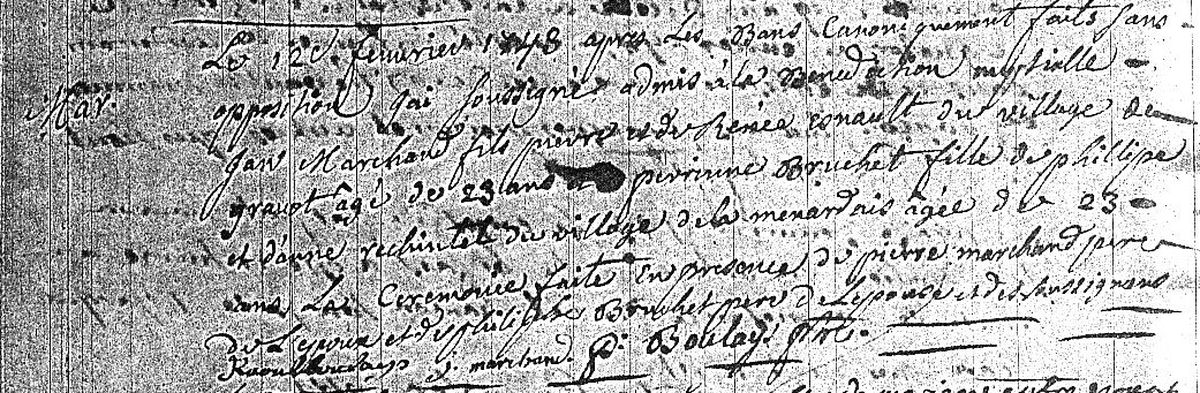 Le 12e feuvrier 1748 apres Les Bans Canoniquement faits sans
Mar. opposition J'ai soussigné admis à la Benediction nuptialle
Jan Marchand fils pierre et de Renée esnault du village de
gravot âgé de 23 ans et perrinne Bruchet fille de phillipe
et d'anne du village de la menardais âgée de 23
ans La Ceremonie faitte En presence de pierre marchand pere
De Lepoux et de philippe Bruchet pere de Lepouse et des soussignans
j. marchand. P. Boulay